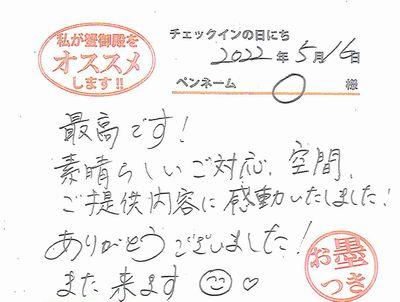 私が蟹御殿を
オススメ
します!!
チェックインの日にち
2022年5月16日
ペンネーム 〇 様
最高です!
素晴らしいご対応、空間、
ご提供内容に感動いたしました!
ありがとうございました!
また来ます
お墨
つき